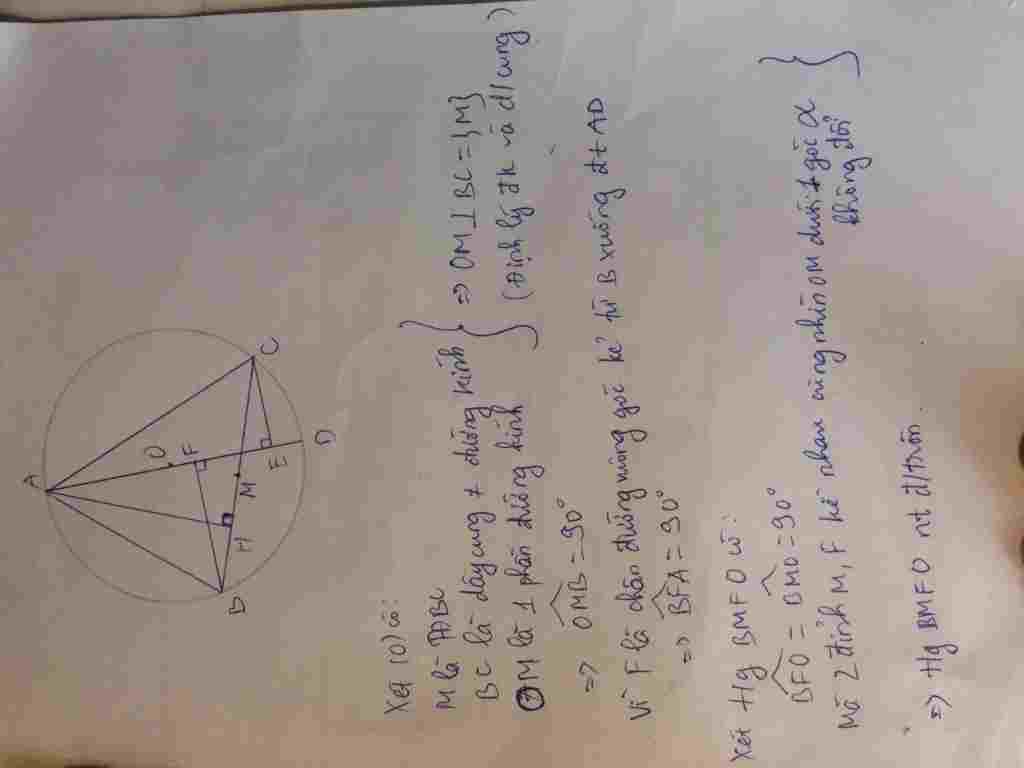 A
O
F
B
H
M
C
E
D
Xét (O) có:
M là TĐBC
BC là dây cung ≠ đường kính
OM là 1 phần đường kính
} => OM ⊥ BC = {M}
(Định lý đk và d/cung)
=> OMB = 90°
Vì F là chân đường vuông góc kẻ từ B xuống đt AD
=> BFA = 90°
Xét Hg BMFO có:
BFO = BMO = 90°
Mà 2 đỉnh M, F kề nhau cùng nhìn OM dưới 1 góc α
không đổi
=> Hg BMFO nt đ/tròn.